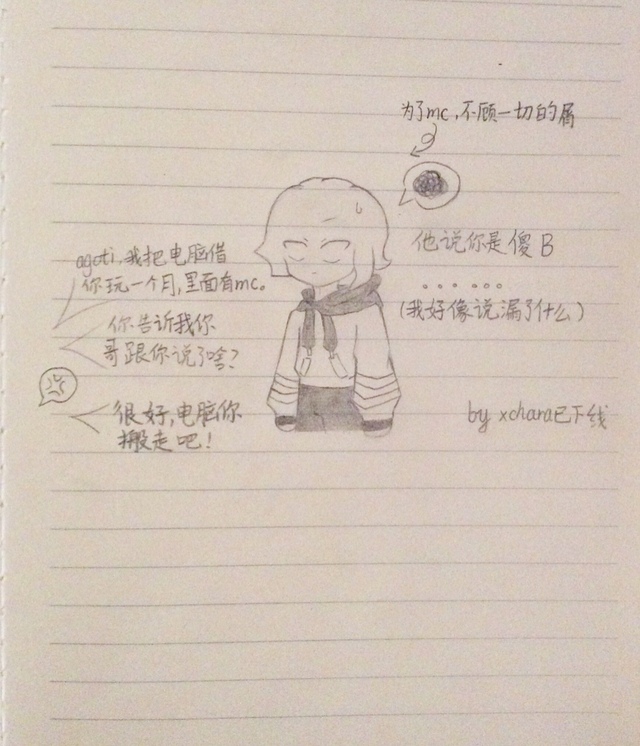 为了mc，不顾一切的屑
agoti，我把电脑借
你玩一个月，里面有mc。
你告诉我你
哥跟你说了啥？
他说你是傻B
……
（我好像说漏了什么）
很好，电脑你
搬走吧！
by xchara已下线